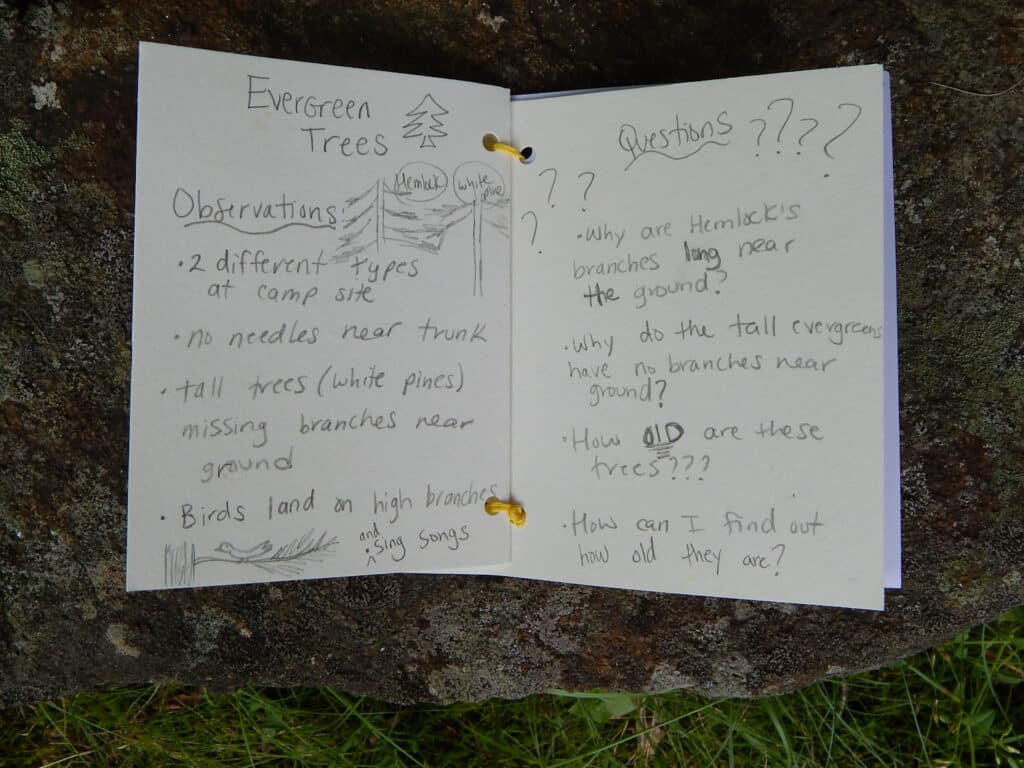 Evergreen
Trees
Hemlock
white
pine
Observations:
• 2 different types
at camp site
• no needles near trunk
• tall trees (white pines)
missing branches near
ground
• Birds land on high branches
and
^
• Sing songs
Questions ????
? ?
?
• Why are Hemlock's
branches long near
the ground?
• Why do the tall evergreens
have no branches near
ground?
• How OLD are these
trees???
• How can I find out
how old they are?